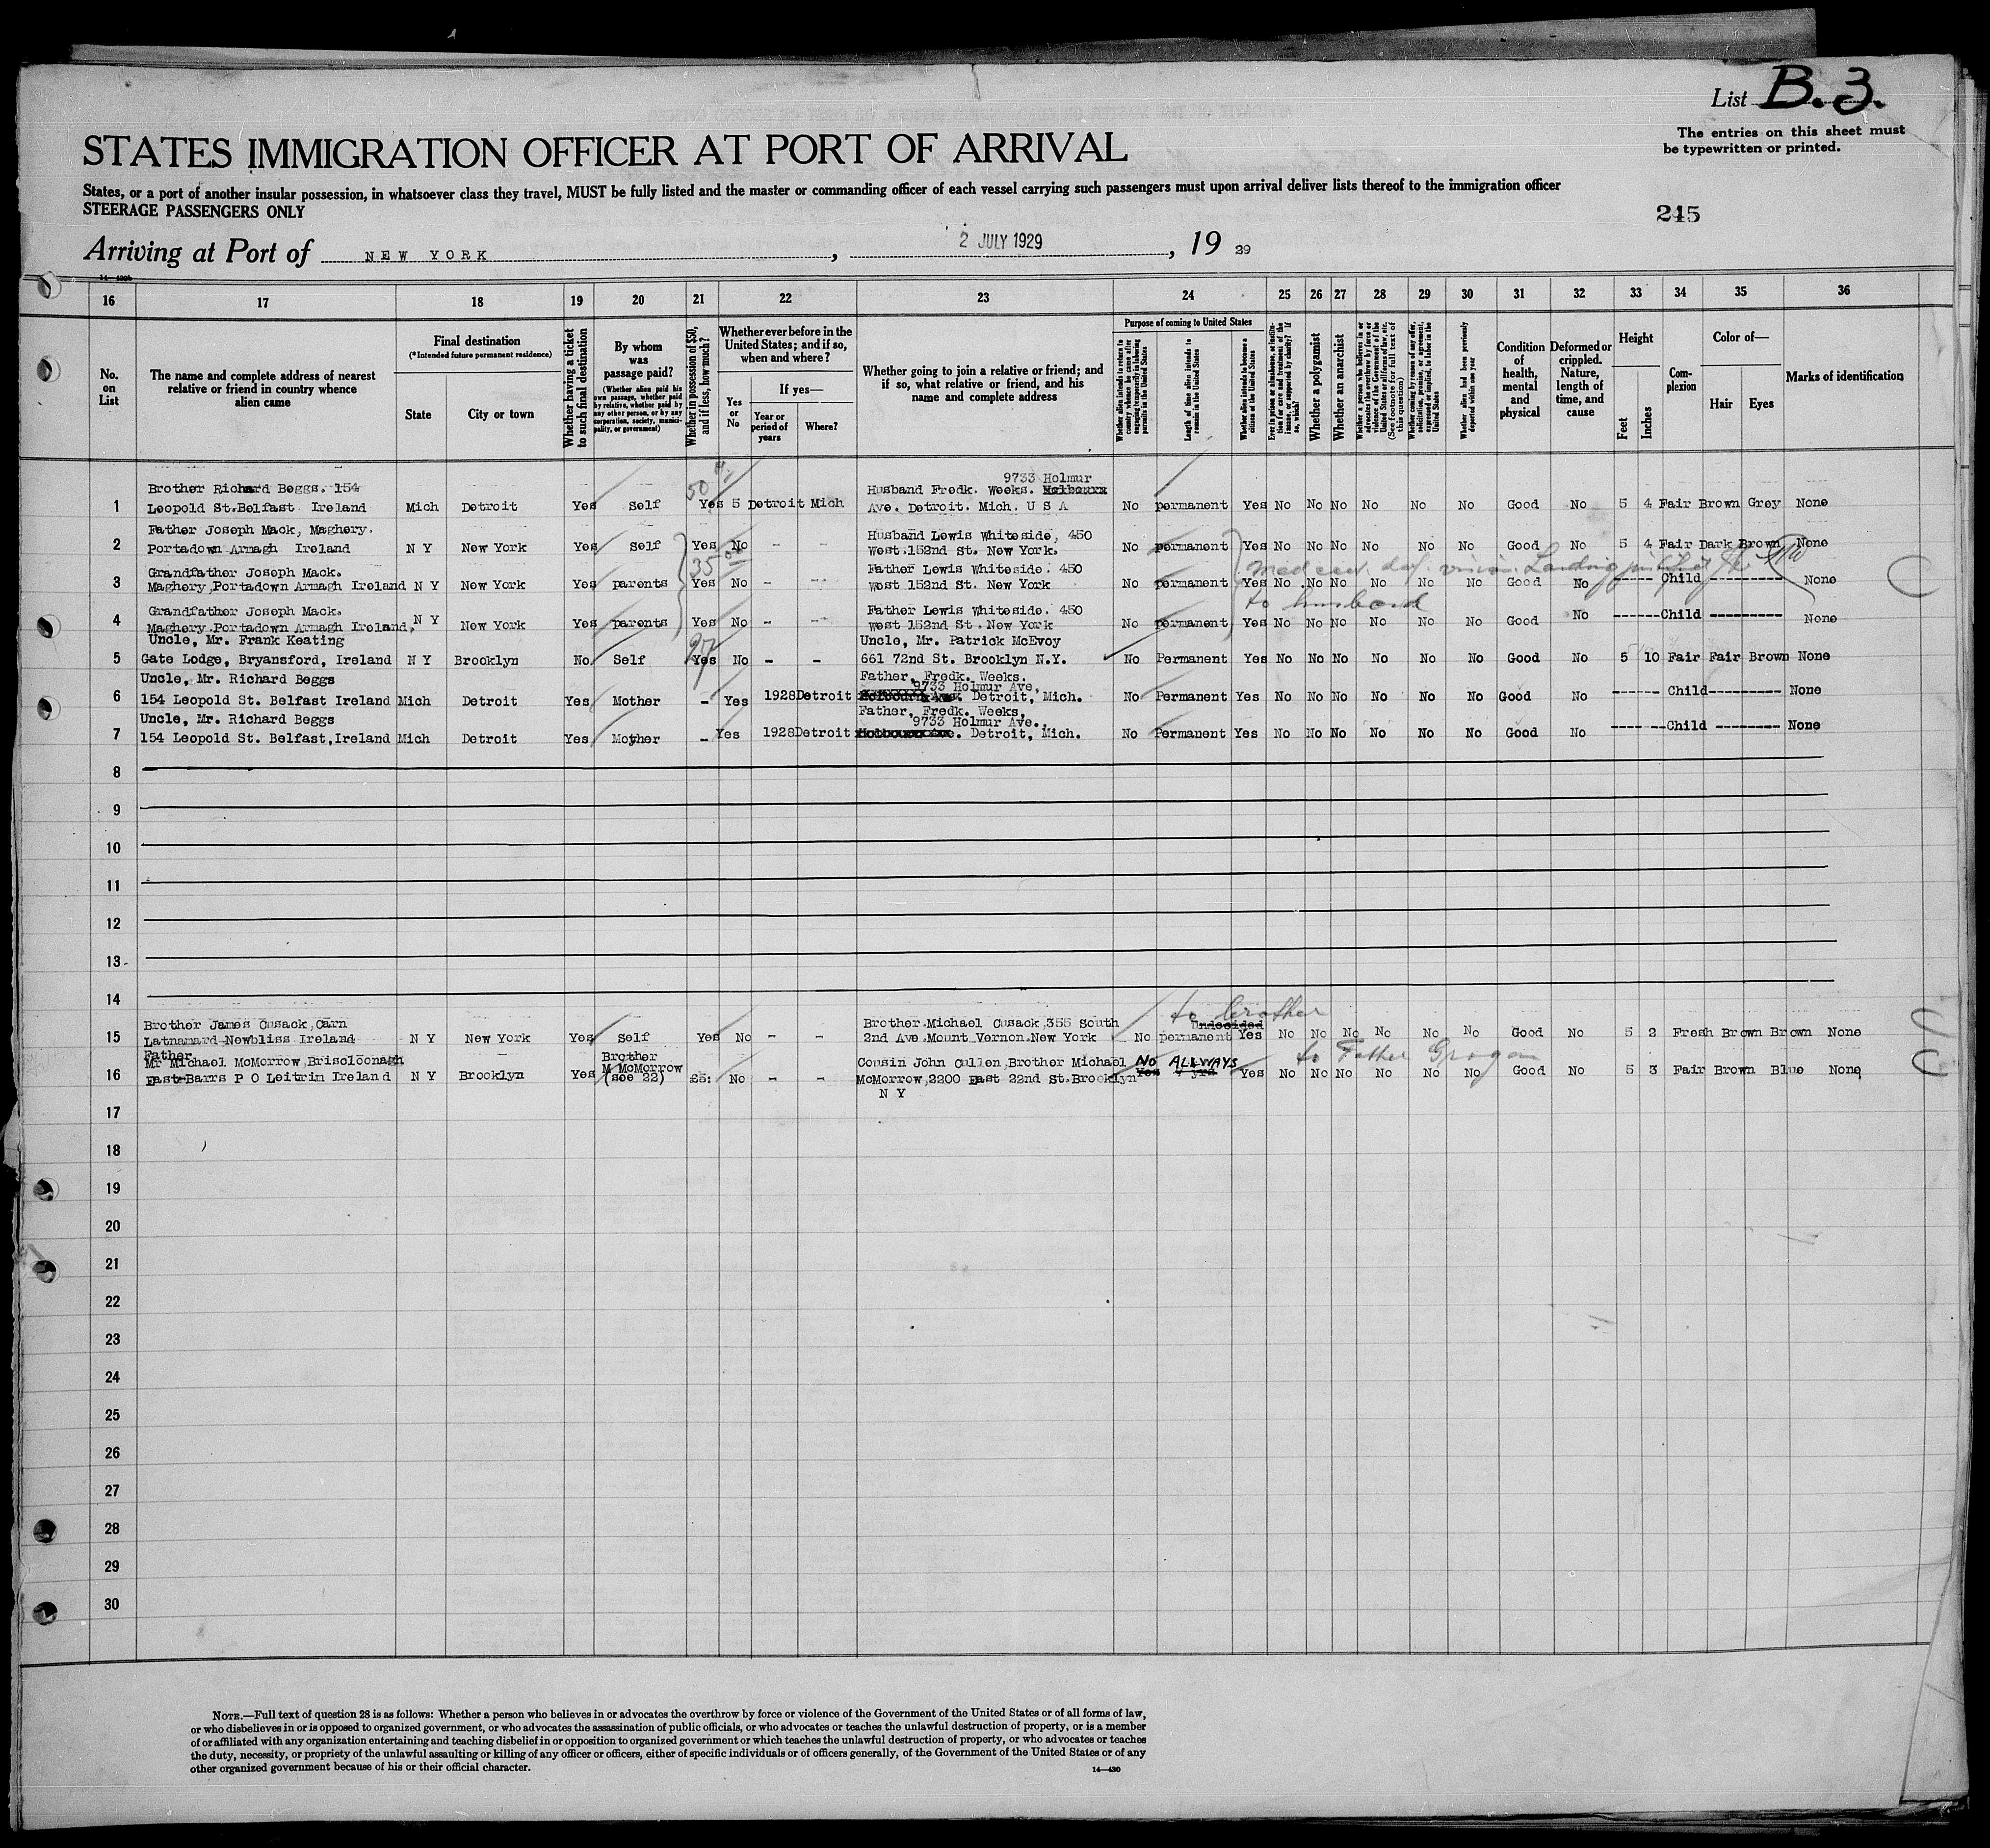 List B.3.
The entries on this sheet must
be typewritten or printed.
STATES IMMIGRATION OFFICER AT PORT OF ARRIVAL
States, or a port of another insular possession, in whatsoever class they travel, MUST be fully listed and the master or commanding officer of each vessel carrying such passengers must upon arrival deliver lists thereof to the immigration officer
STEERAGE PASSENGERS ONLY
245
Arriving at Port of NEW YORK, 2 JULY 1929, 19 29
16 17 18 19 20 21 22 23 24 25 26 27 28 29 30 31 32 33 34 35 36
No. on List
The name and complete address of nearest relative or friend in country whence alien came
Final destination
(*Intended future permanent residence)
State
City or town
Whether having a ticket to such final destination
By whom was passage paid?
(Whether alien paid his own passage, whether paid by relative, whether paid by any other person, or by any corporation, society, municipality, or government)
Whether in possession of $50, and if less, how much?
Whether ever before in the United States; and if so, when and where?
Yes or No
If yes—
Year or period of years
Where?
Whether going to join a relative or friend; and if so, what relative or friend, and his name and complete address
Purpose of coming to United States
Whether alien intends to return to country whence he came after engaging temporarily in laboring pursuits in the United States
Length of time alien intends to remain in the United States
Whether alien intends to become a citizen of the United States
Ever in prison or almshouse, or institution for care and treatment of the insane, or supported by charity? If so, which?
Whether a polygamist
Whether an anarchist
Whether a person who believes in or advocates the overthrow by force or violence of the Government of the United States or all forms of law, etc. (See footnote for full text of this question)
Whether coming by reason of any offer, solicitation, promise, or agreement, expressed or implied, to labor in the United States
Whether alien had been previously deported within one year
Condition of health, mental and physical
Deformed or crippled. Nature, length of time, and cause
Height
Feet
Inches
Complexion
Color of—
Hair
Eyes
Marks of identification
9733 Holmur
Brother Richard Beggs. 154 50 Husband Fredk. Weeks.
1 Leopold St.Belfast Ireland Mich Detroit Yes Self Yes 5 Detroit Mich Ave. Detroit. Mich. U S A No permanent Yes No No No No No No Good No 5 4 Fair Brown Grey None
Father Joseph Mack, Maghery. Husband Lewis Whiteside, 450
2 Portadown Armagh Ireland N Y New York Yes Self Yes No - - West.152nd St. New York. No permanent Yes No No No No No No Good No 5 4 Fair Dark Brown None
Grandfather Joseph Mack. 35 Father Lewis Whiteside. 450
3 Maghery Portadown Armagh Ireland N Y New York Yes parents Yes No - - West 152nd St. New York No permanent Yes No No No No No No Good No ----- Child ------- None
to husband
Grandfather Joseph Mack. Father Lewis Whiteside. 450
4 Maghery Portadown Armagh Ireland, N Y New York Yes parents Yes No - - West 152nd St. New York No permanent Yes No No No No No No Good No ------Child --------- None
Uncle, Mr. Frank Keating Uncle, Mr. Patrick McEvoy
5 Gate Lodge, Bryansford, Ireland N Y Brooklyn No Self Yes No - - 661 72nd St. Brooklyn N.Y. No Permanent Yes No No No No No No Good No 5 10 Fair Fair Brown None
Uncle, Mr. Richard Beggs Father, Fredk. Weeks.
9733 Holmur Ave,
6 154 Leopold St. Belfast Ireland Mich Detroit Yes Mother - Yes 1928 Detroit Detroit, Mich. No Permanent Yes No No No No No No Good No ------ Child--------- None
Uncle, Mr. Richard Beggs Father, Fredk. Weeks,
9733 Holmur Ave.,
7 154 Leopold St. Belfast,Ireland Mich Detroit Yes Mother - Yes 1928 Detroit Detroit, Mich. No Permanent Yes No No No No No No Good No ------Child --------- None
8
9
10
11
12
13
14
to brother
Brother James Cusack,Carn Brother Michael Cusack 355 South Undecided
15 Latnamard Newbliss Ireland N Y New York Yes Self Yes No - - 2nd Ave.Mount Vernon.New York No permanent Yes No No No No No No Good No 5 2 Fresh Brown Brown None
Father Brother to Father Grogan
Mr Michael McMorrow,Briscloonagh M McMorrow Cousin John Cullen,Brother Michael No ALLWAYS
16 East Barrs P O Leitrim Ireland N Y Brooklyn Yes (see 22) £5: No - - McMorrow,2200 East 22nd St.Brooklyn Yes yrs Yes No No No No No No Good No 5 3 Fair Brown Blue None
N Y
17
18
19
20
21
22
23
24
25
26
27
28
29
30
NOTE.—Full text of question 28 is as follows: Whether a person who believes in or advocates the overthrow by force or violence of the Government of the United States or of all forms of law,
or who disbelieves in or is opposed to organized government, or who advocates the assassination of public officials, or who advocates or teaches the unlawful destruction of property, or is a member
of or affiliated with any organization entertaining and teaching disbelief in or opposition to organized government or which teaches the unlawful destruction of property, or who advocates or teaches
the duty, necessity, or propriety of the unlawful assaulting or killing of any officer or officers, either of specific individuals or of officers generally, of the Government of the United States or of any
other organized government because of his or their official character.
14—430